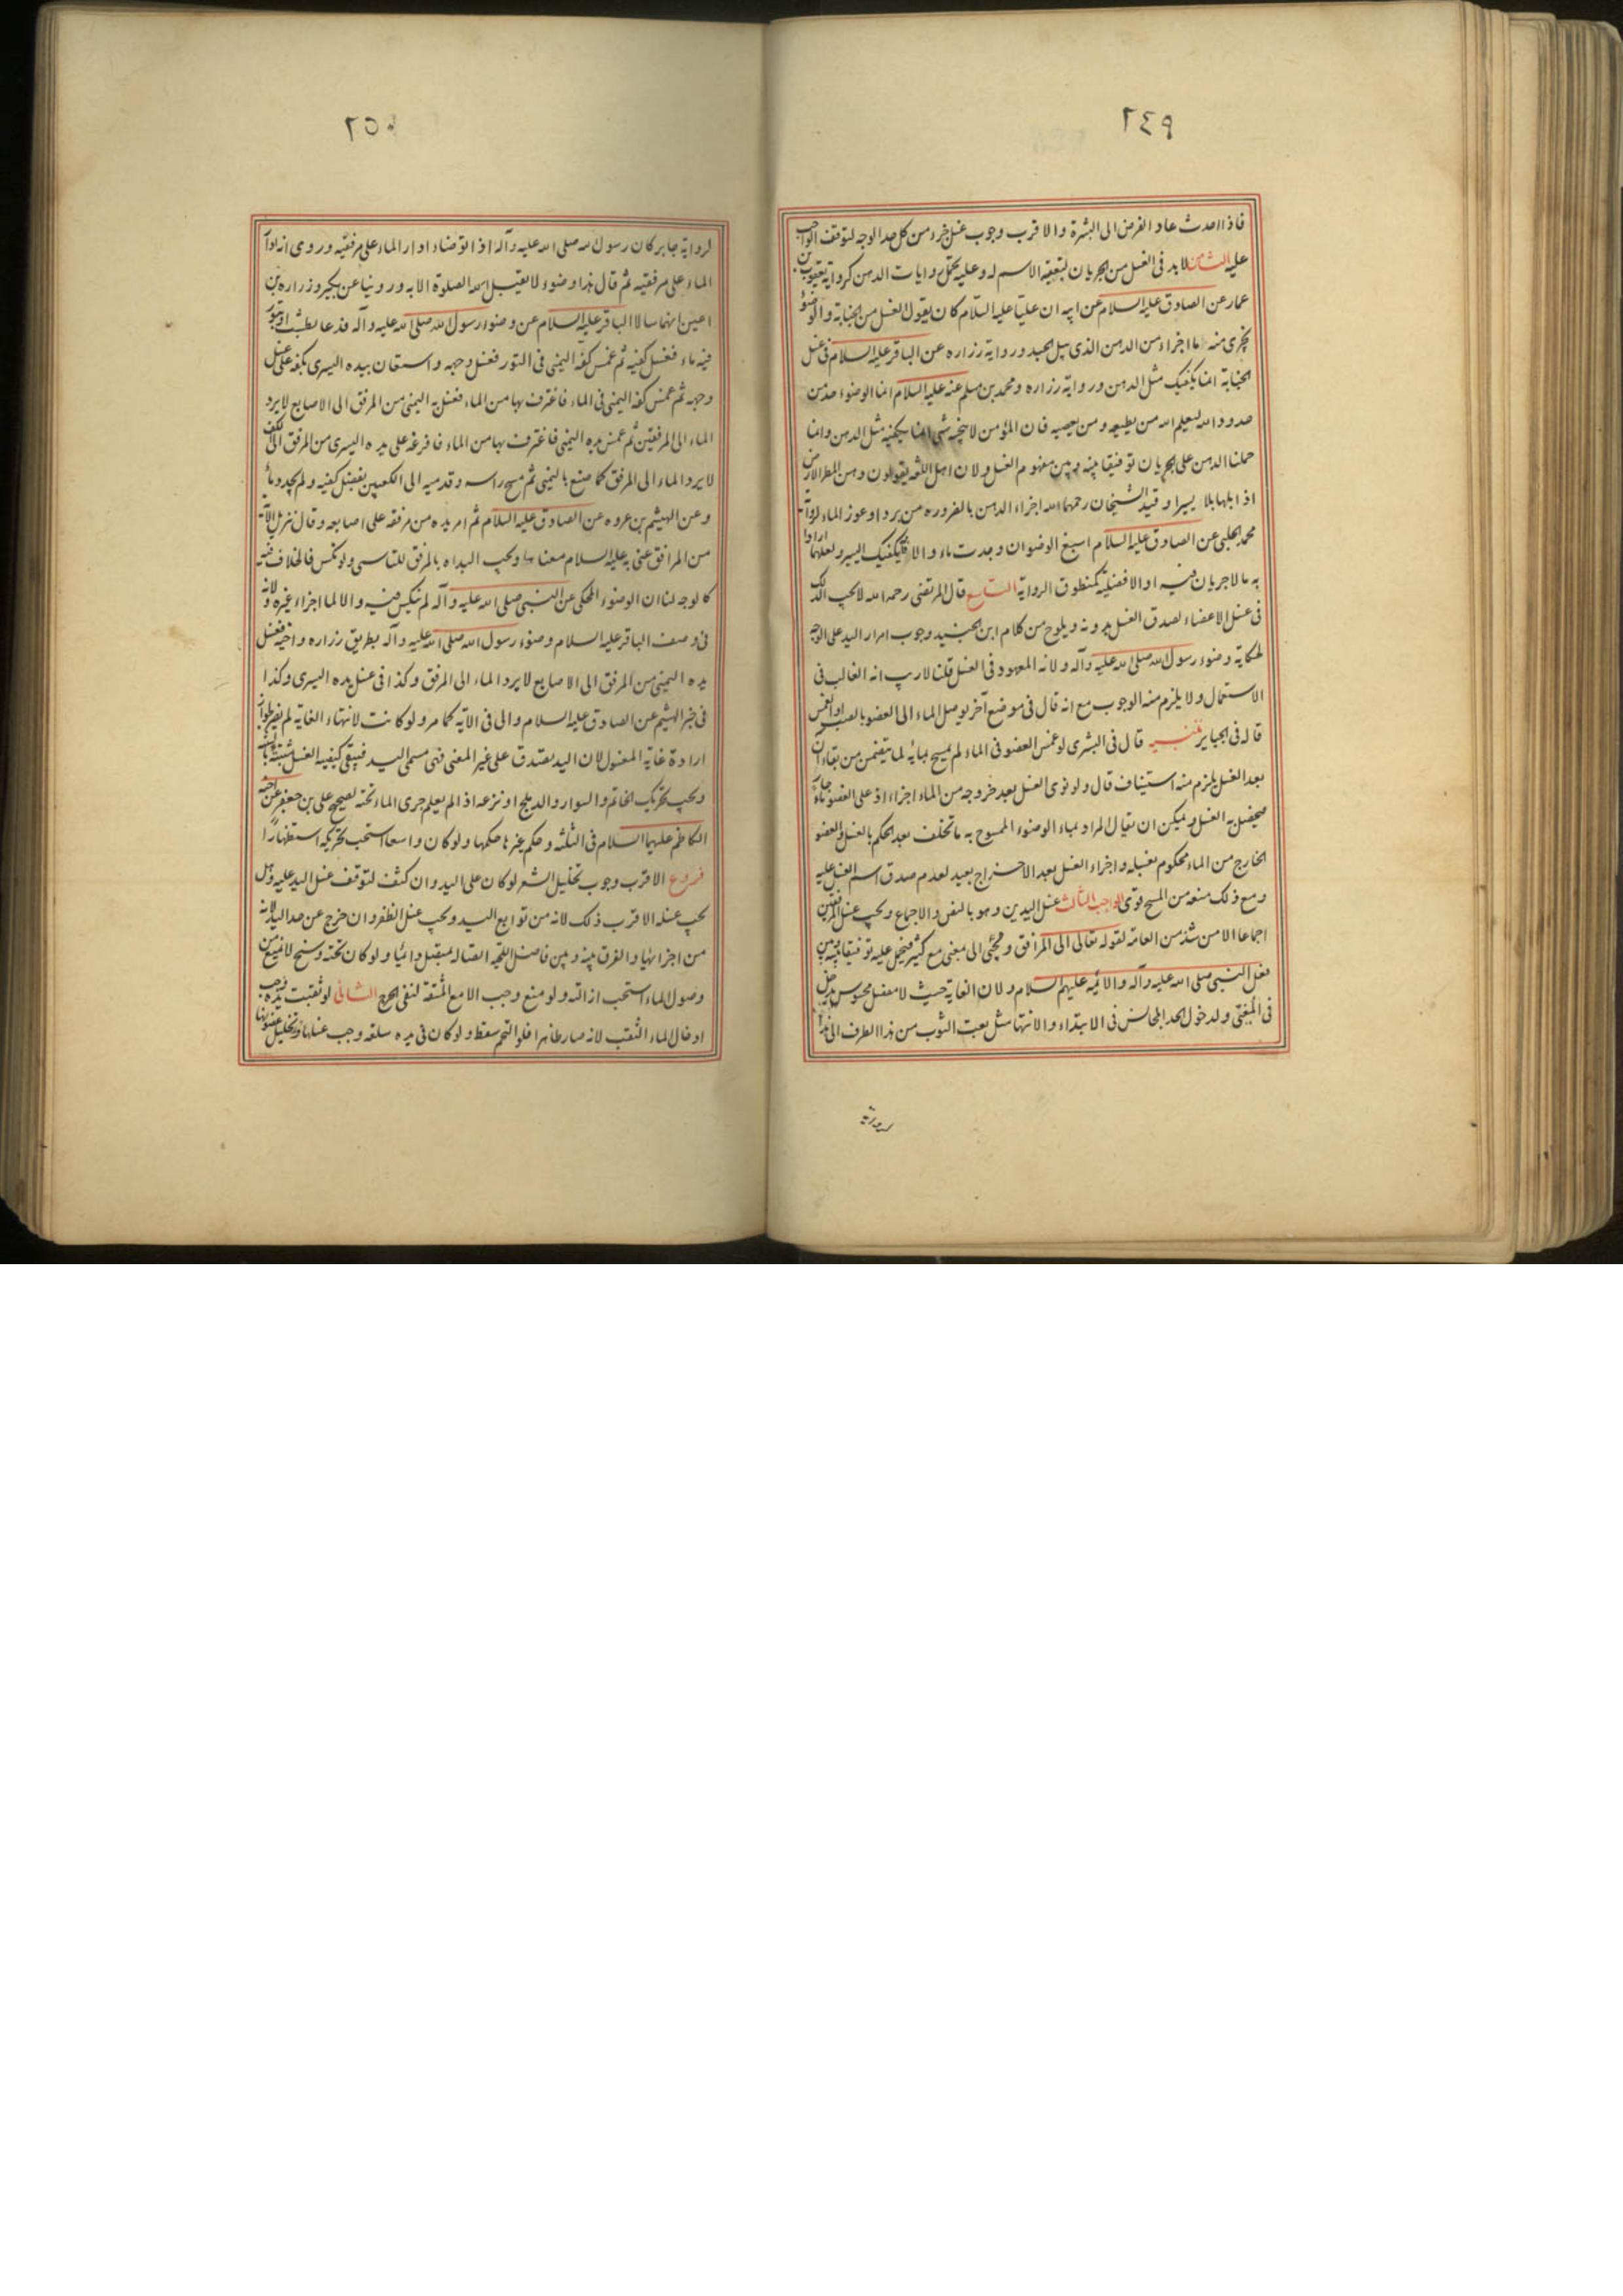 ٢٤٩
فاذا احدث عاد الفرض الى البشرة والاقرب وجوب غسل جزء من كل حد الوجه لتوقف الواجب
عليه الثامن لابد فى الغسل من الجريان لتبعيته الاسم له وعليه تحمل روايات الدهن كرواية يعقوب بن
عمار عن الصادق عليه السلام عن ابيه ان عليا عليه السلام كان يقول الغسل من الجنابة والوضوء
يجزى منه ما اجزاء من الدهن الذى يبل الجسد ورواية زراره عن الباقر عليه السلام فى غسل
الجنابة انما يكفيك مثل الدهن ورواية زراره ومحمد بن مسلم عنه عليه السلام انما الوضوء حد من
حدود الله ليعلم الله من يطيعه ومن يعصيه فان المؤمن لا ينجسه شى انما يكفيه مثل الدهن وانما
حملنا الدهن على الجريان توفيقا بينه وبين مفهوم الغسل ولان اهل اللغه يقولون دهن المطر الارض
اذا بلها بلا يسيرا وقيد الشيخان رحمهما الله اجزاء الدهن بالضروره من برد او عوز الماء لرواية
محمد الحلبى عن الصادق عليه السلام اسبغ الوضو ان وجدت ماء والا فيكفيك اليسير ولعلهما ارادا
به ما لا جريان فيه او الافضلية كمنطوق الرواية التاسع قال المرتضى رحمه الله لا يجب الدلك
فى غسل الاعضاء لصدق الغسل بدونه ويلوح من كلام ابن الجنيد وجوب امرار اليد على الوجه
لحكاية وضوء رسول الله صلى الله عليه وآله ولانه المعهود فى الغسل قلنا لا ريب انه الغالب فى
الاستعمال ولا يلزم منه الوجوب مع انه قال فى موضع آخر يوصل الماء الى العضو بالصب او الغمس
قاله فى الجباير تنبيه قال فى البشرى لو غمس العضو فى الماء لم يمسح بمائه لما يتضمن من بقاء آن
بعد الغسل يلزم منه استيناف قال ولو نوى الغسل بعد خروجه من الماء اجزاء اذ على العضو ماء جار
فيحصل به الغسل ويمكن ان يقال المراد بماء الوضوء الممسوح به ما تخلف بعد الحكم بالغسل والعضو
الخارج من الماء محكوم بغسله واجزاء الغسل بعد الاخراج بعيد لعدم صدق اسم الغسل عليه
ومع ذلك منعه من المسح قوى الواجب الثالث غسل اليدين وهو بالنص والاجماع ويجب غسل المرفقين
اجماعا الا من شذ من العامه لقوله تعالى الى المرافق ومجئى الى بمعنى مع كثير فيحمل عليه توفيقا بينه وبين
فعل النبى صلى الله عليه وآله والائمه عليهم السلام ولان الغاية حيث لا مفصل محسوس يدخل
فى المغيى ولدخول الحد المجانس فى الابتداء والانتها مثل بعت الثوب من هذا الطرف الى هذا
لرواية
٢٥٠
لرواية جابر كان رسول الله صلى الله عليه وآله اذا توضاء ادار الماء على مرفقيه وروى انه ادار
الماء على مرفقيه ثم قال هذا وضوء لا يقبل الله الصلوة الا به وروينا عن بكير وزراره بن
اعين انهما سالا الباقر عليه السلام عن وضوء رسول الله صلى الله عليه وآله فدعا بطشت او بتور
فيه ماء فغسل كفيه ثم غمس كفه اليمنى فى التور فغسل وجهه واستعان بيده اليسرى بكفه على غسل
وجهه ثم غمس كفه اليمنى فى الماء فاغترف بها من الماء فغسل يده اليمنى من المرفق الى الاصابع لا يرد
الماء الى المرفقين ثم غمس يده اليمنى فاغترف بها من الماء فافرغه على يده اليسرى من المرفق الى الكف
لا يرد الماء الى المرفق كما صنع باليمنى ثم مسح راسه وقدميه الى الكعبين بفضل كفيه ولم يجدد ماء
وعن الهيثم بن عروه عن الصادق عليه السلام ثم امر يده من مرفقه على اصابعه وقال تنزيل الآية
من المرافق عنى به عليه السلام معناها ويجب البداه بالمرفق للتاسى ولو نكس فالخلاف فيه
كالوجه لنا ان الوضوء المحكى عن النبى صلى الله عليه وآله لم ينكس فيه والا لما اجزاء غيره ولانه
فى وصف الباقر عليه السلام وضوء رسول الله صلى الله عليه وآله بطريق زراره واخيه فغسل
يده اليمنى من المرفق الى الاصابع لا يرد الماء الى المرفق وكذا فى غسل يده اليسرى وكذا
فى خبر الهيثم عن الصادق عليه السلام والى فى الآية كما مر ولو كانت لانتهاء الغاية لم يضر لجواز
ارادة غاية المغسول لان اليد تصدق على غير المعنى فهى مسمى اليد فيبقى كيفيه الغسل مثبتة بالسنة
ويجب تحريك الخاتم والسوار والدملج او نزعه اذا لم يعلم جرى الماء تحته لصحيح على بن جعفر عن اخيه
الكاظم عليهما السلام فى الثلثه وحكم غيرها حكمها ولو كان واسعا استحب تحريكه استظهارا
فروع الاقرب وجوب تخليل الشعر لو كان على اليد وان كثف لتوقف غسل اليد عليه وهل
يجب غسله الاقرب ذلك لانه من توابع اليد ويجب غسل الظفر وان خرج عن حد اليد لانه
من اجزائها والفرق بينه وبين فاضل اللحيه اتصاله بمتصل دائما ولو كان تحته وسخ لا يمنع من
وصول الماء استحب ازالته ولو منع وجب الا مع المشقه لنفى الحرج الثانى لو ثقبت يده وجب
ادخال الماء الثقب لانه صار ظاهرا فلو التحم سقط ولو كان فى يده سلعه وجب غسلها وتخليل غضونها